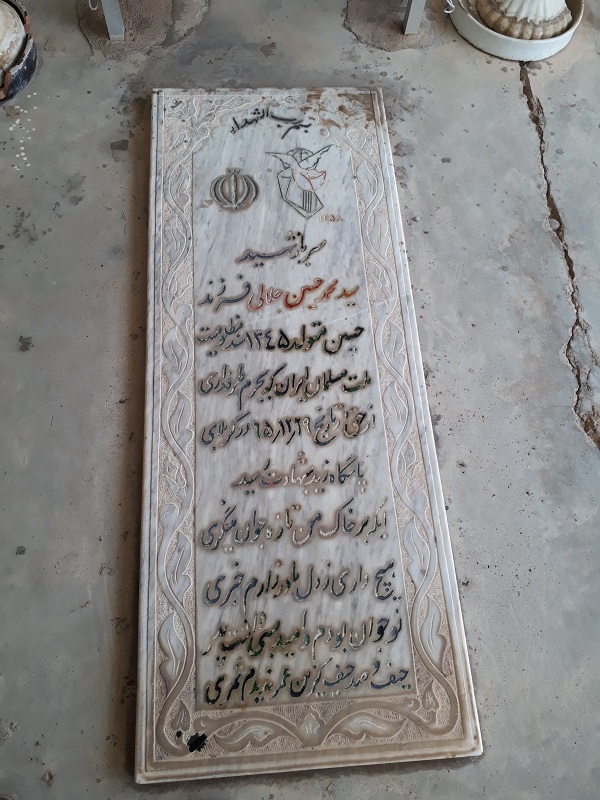 برب الشهداء
۱۳۵۸
سرباز شهید
سید محمد حسن جلالی فرزند
حسن متولد ۱۳۴۵ سند مظلومیت
ملت مسلمان ایران که بجرم طرفداری
از حق تاریخ ۶۵/۱۲/۲۹ در کربلای
پاسگاه زید بشهادت رسید
ایکه بر خاک من تازه جوان مینگری
هیچ داری ز دل مادر زارم خبری
نوجوان بودم و امید بمن داشت پدر
حیف و صد حیف کزین عمر ندیدم ثمری